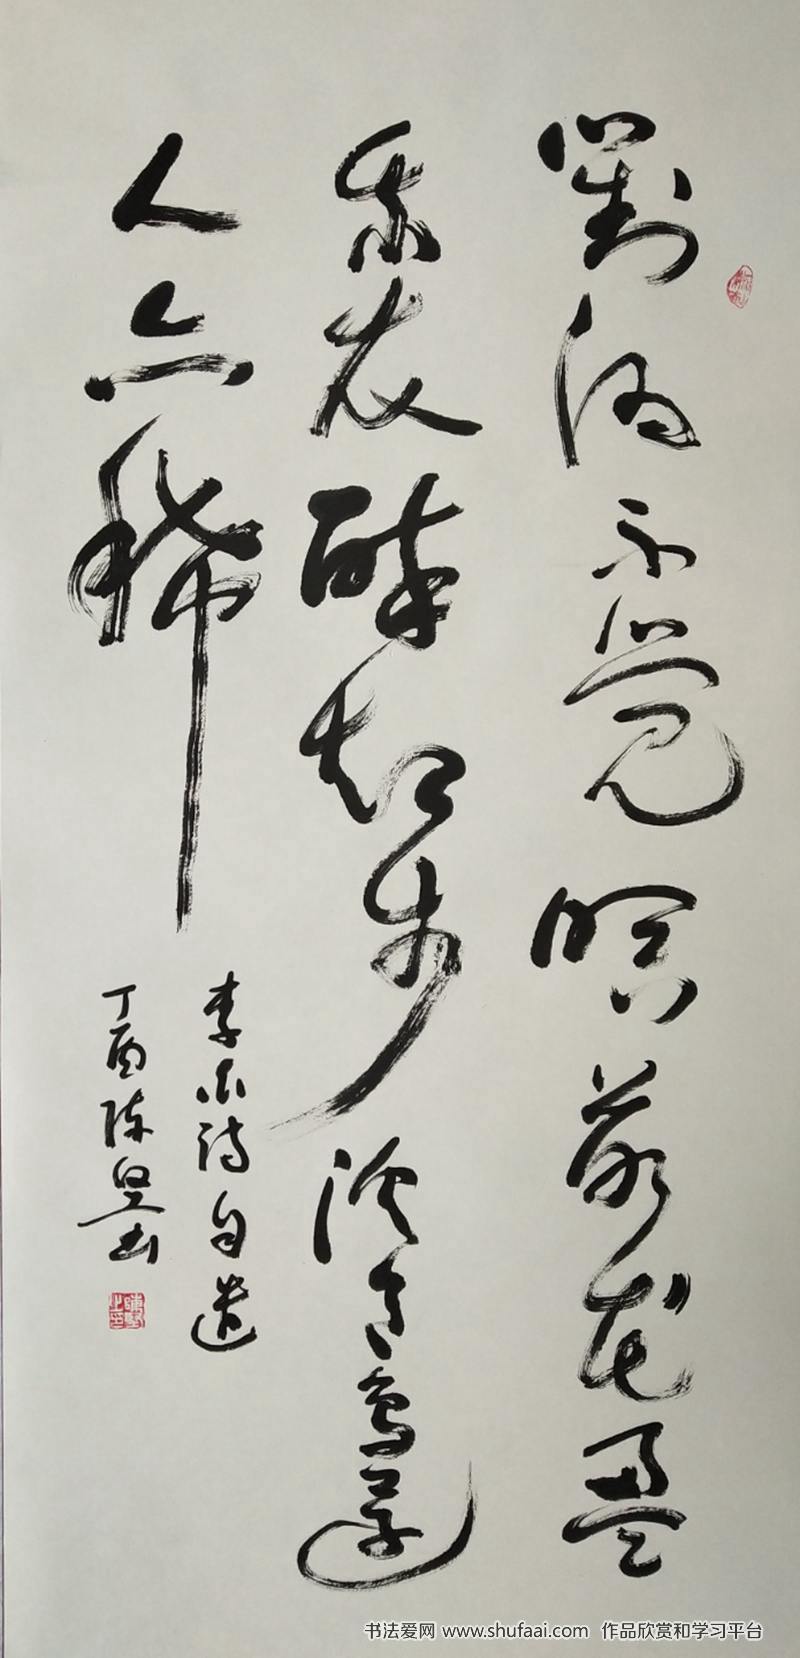 對酒不覺暝落花盈
我衣醉起步溪月鳥還
人亦稀
李白詩自遣
丁酉陳堅書
书法爱网 www.shufaai.com 作品欣赏和学习平台